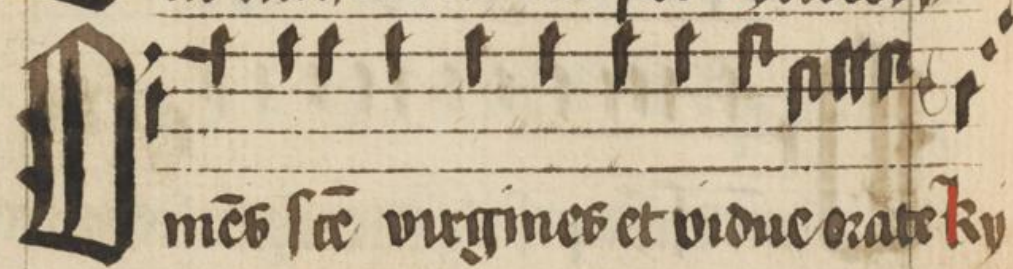 Omēs sctē virgines et vidue orate Ky